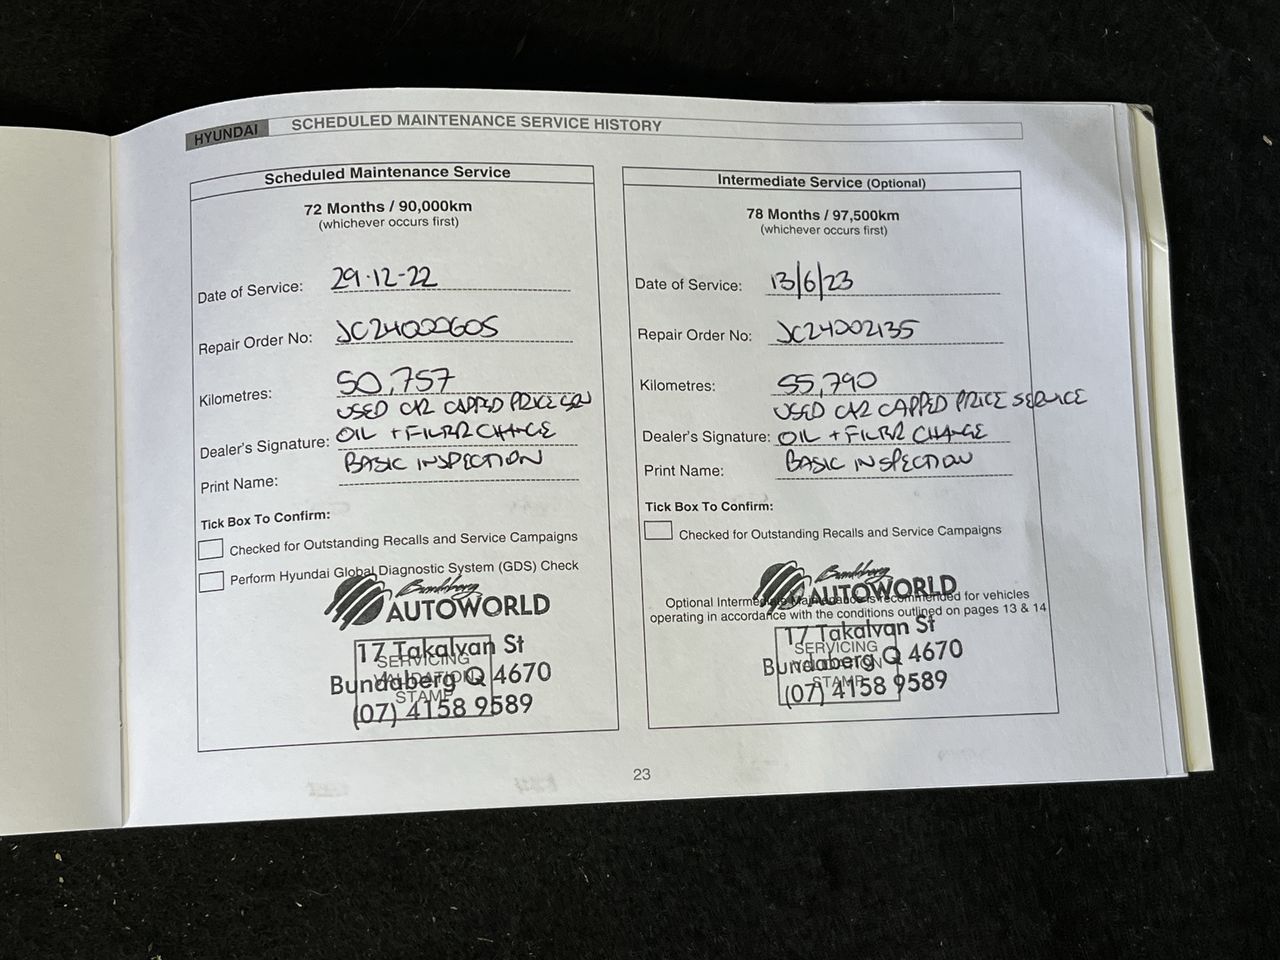 HYUNDAI
SCHEDULED MAINTENANCE SERVICE HISTORY
Scheduled Maintenance Service
72 Months / 90,000km
(whichever occurs first)
Date of Service: 29-12-22
Repair Order No: JC24000605
Kilometres: 50,757
USED CAR CAPPED PRICE
Dealer's Signature: OIL + FILTER CHANGE
Print Name: BASIC INSPECTION
Tick Box To Confirm:
Checked for Outstanding Recalls and Service Campaigns
Perform Hyundai Global Diagnostic System (GDS) Check
Bundaberg
AUTOWORLD
17 Takalvan St
SERVICING
Bundaberg Q 4670
VALIDATION
STAMP
(07) 4158 9589
Intermediate Service (Optional)
78 Months / 97,500km
(whichever occurs first)
Date of Service: 13/6/23
Repair Order No: JC24002135
Kilometres: 55,790
USED CAR CAPPED PRICE SERVICE
Dealer's Signature: OIL + FILTER CHANGE
Print Name: BASIC INSPECTION
Tick Box To Confirm:
Checked for Outstanding Recalls and Service Campaigns
Bundaberg
AUTOWORLD
Optional Intermediate Maintenance is recommended for vehicles
operating in accordance with the conditions outlined on pages 13 & 14
17 Takalvan St
SERVICING
Bundaberg Q 4670
VALIDATION
STAMP
(07) 4158 9589
23